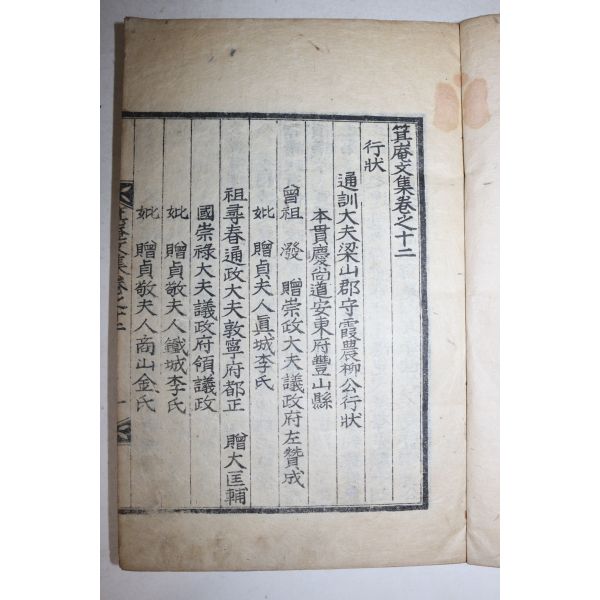 箕庵文集卷之十二
行狀
通訓大夫梁山郡守霞農柳公行狀
本貫慶尙道安東府豐山縣
曾祖 潑 贈崇政大夫議政府左贊成
妣 贈貞夫人眞城李氏
祖尋春通政大夫敦寧府都正 贈大匡輔
國崇祿大夫議政府領議政
妣 贈貞敬夫人鐵城李氏
妣 贈貞敬夫人商山金氏
箕庵文集卷之十二
一